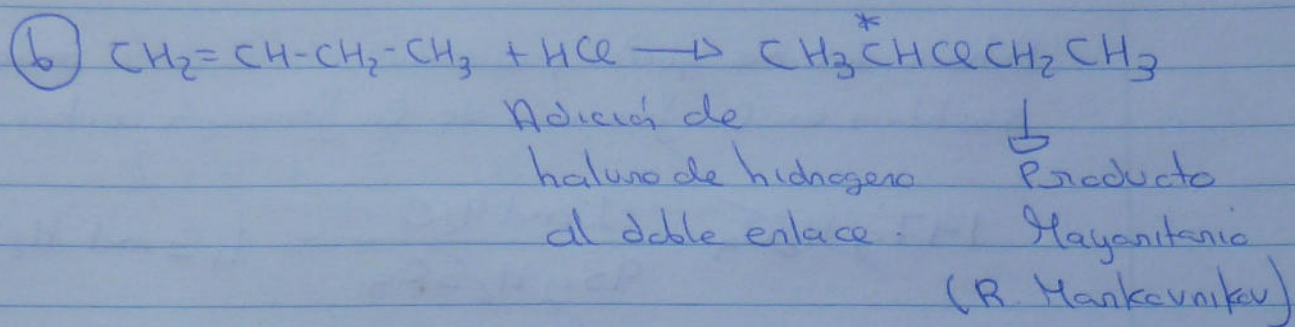 b CH₂=CH-CH₂-CH₃ + HCl → CH₃C*HClCH₂CH₃
Adición de ↓
haluro de hidrogeno Producto
al doble enlace. Mayoritario
(R. Markovnikov)